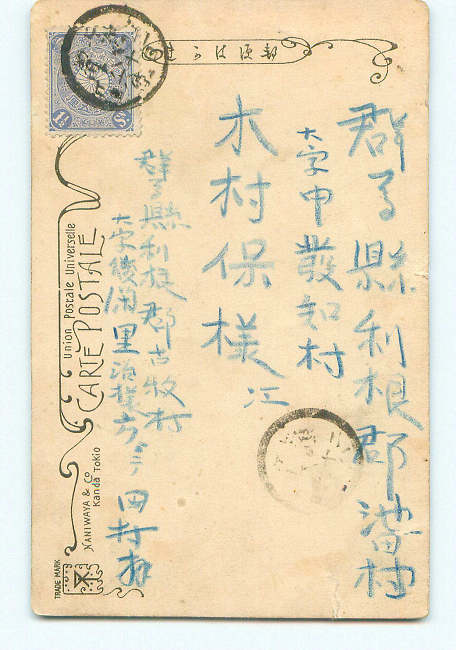 きかは便郵
群馬縣利根郡池田村
大字中發知村
木村保様
江
群馬縣利根郡古牧村
大字後閑里治樸方ニテ
田村
Union Postale Universelle
CARTE POSTALE
NANIWAYA & CO
Kanda Tokio
TRADE MARK
1½ Sn